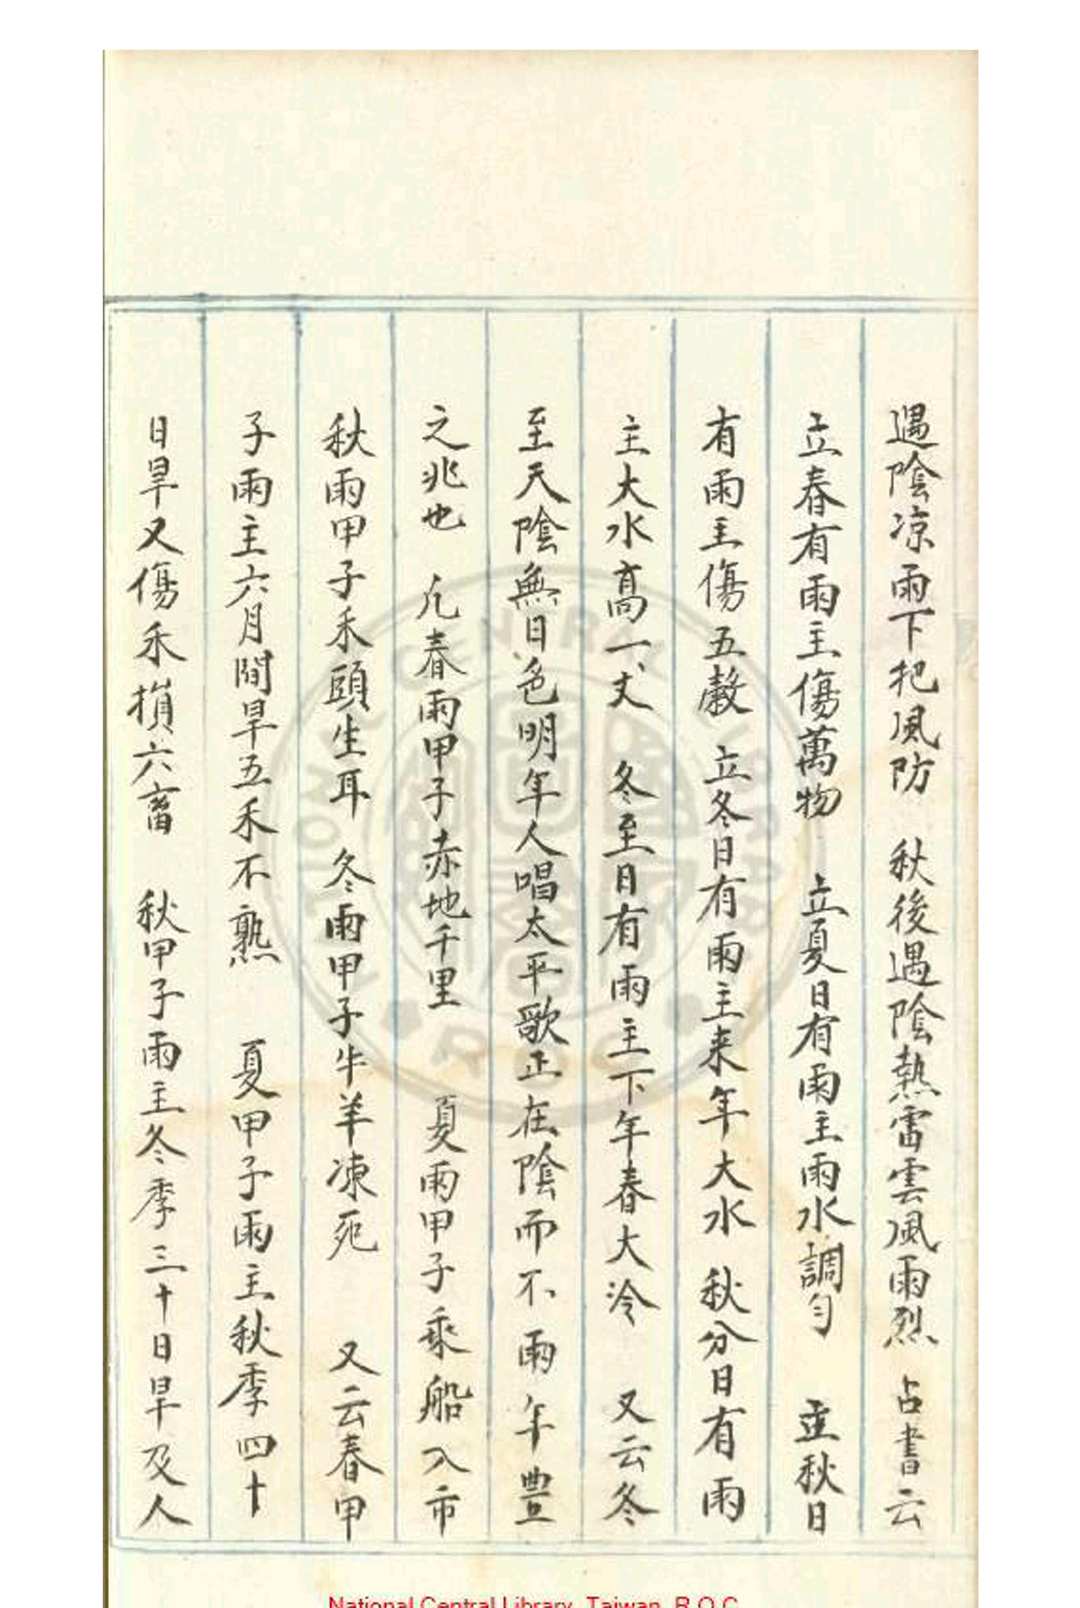 遇陰凉雨下把風防　秋後遇陰熱雷雲風雨烈　占書云
立春有雨主傷萬物　立夏日有雨主雨水調勻　立秋日
有雨主傷五穀　立冬日有雨主来年大水　秋分日有雨
主大水高一丈　冬至日有雨主下年春大冷　又云冬
至天陰無日色明年人唱太平歌正在陰而不雨年豊
之兆也　凢春雨甲子赤地千里　夏雨甲子乘船入市
秋雨甲子禾頭生耳　冬雨甲子牛羊凍死　又云春甲
子雨主六月間旱五禾不熟　夏甲子雨主秋季四十
日旱又傷禾損六畜　秋甲子雨主冬季三十日旱及人
NATIONAL CENTRAL LIBRARY
R.O.C
National Central Library, Taiwan, R.O.C